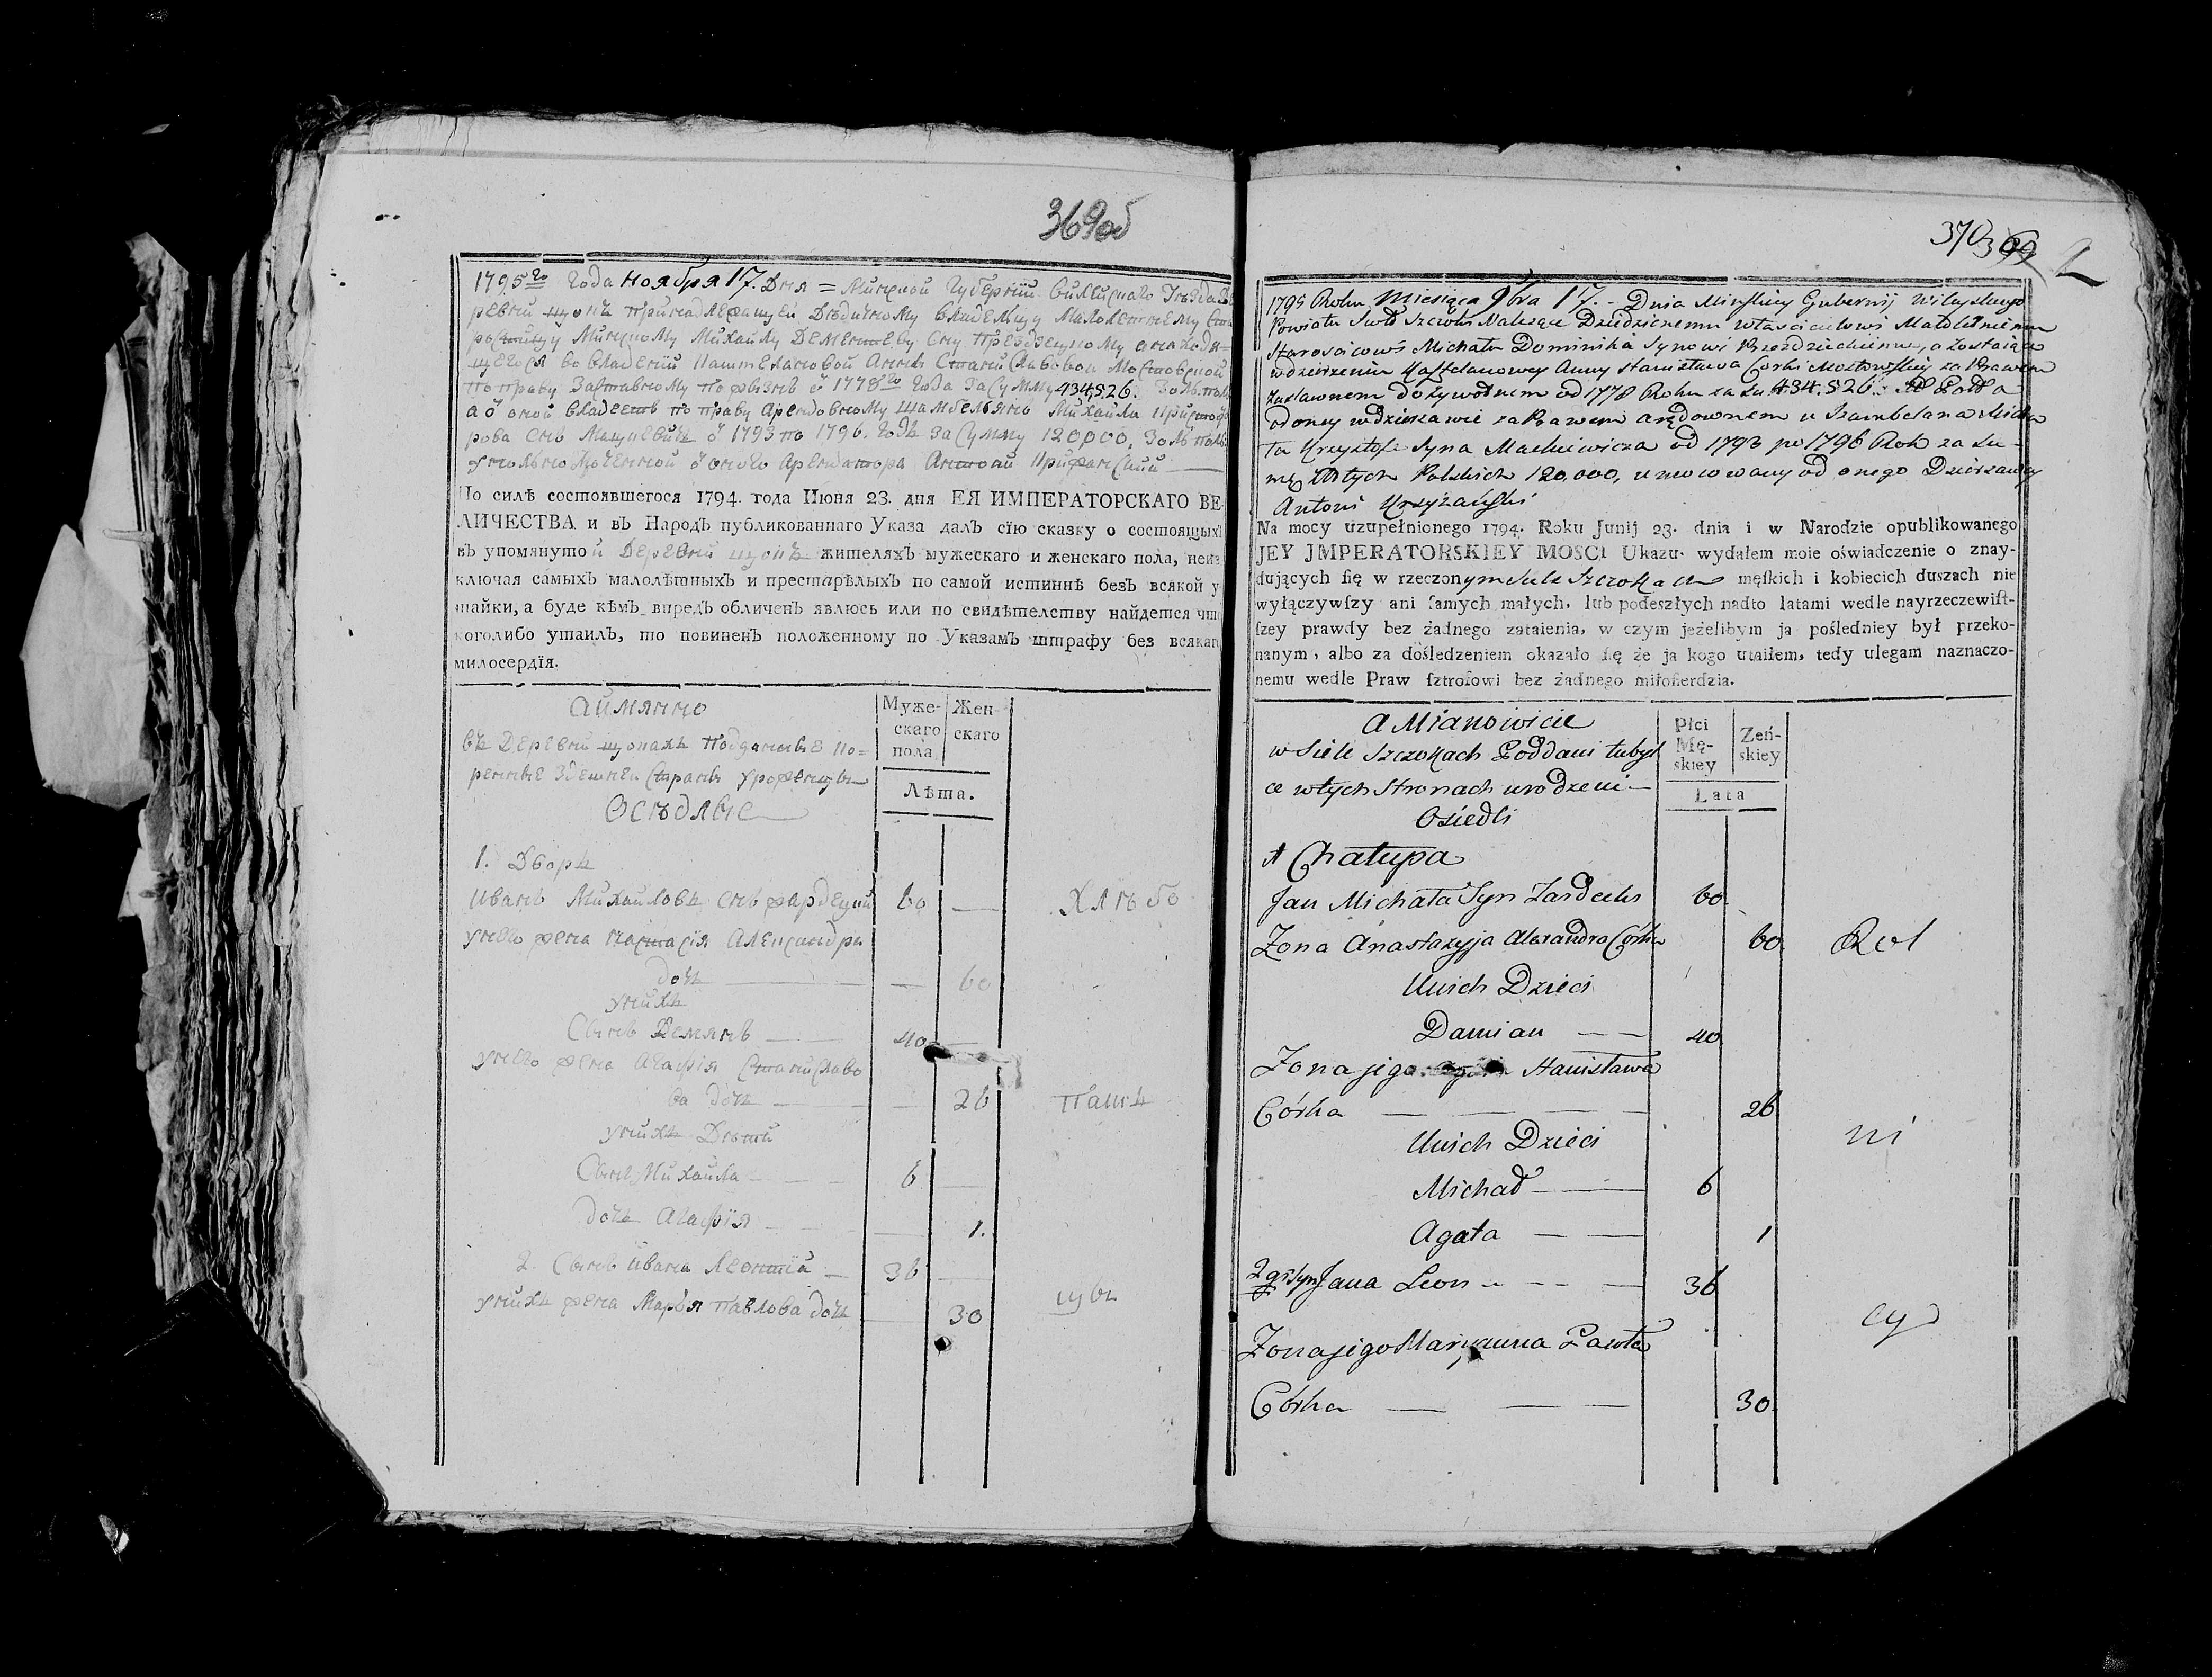 369об
1795го Года ноября 17. Дня = Минской Губернии Вилейскаго Уезда де
ревни щокъ принадлежащей Дедичному владельцу Малолетнему Ста
росцицу Минскому Михайлу Дементеву сну Прездецкому а находя
щегося во владении Каштеляновой Анны Станиславовой Мостовской
по праву заставному пожизнь с 1778го Года за сумму 434,526. Зол: пол:
а с оной владеетъ по праву Арендовному шамбелянъ Михайла Кристоф
рова снъ Мацкевичъ с 1793 по 1796. годъ за сумму 120,000, Зол: поль:
уполномоченной с оного Арендатора Антоний Крижанский
По силѣ состоявшегося 1794. года Июня 23. дня ЕЯ ИМПЕРАТОРСКАГО ВЕ-
ЛИЧЕСТВА и въ Народъ публикованнаго Указа далъ сїю сказку о состоящихъ
въ упомянутой Деревни щокъ жителяхъ мужескаго и женскаго пола, неиз
ключая самыхъ малолѣтныхъ и престарѣлыхъ по самой истиннѣ безъ всякой у
тайки, а буде кѣмъ впредь обличенъ явлюсь или по свидѣтелству найдется что
коголибо утаилъ, то повиненъ положенному по Указамъ штрафу без всякаго
милосердїя.
Аймянно
въ Деревни щокахъ подданные ко-
ренные здешней стараны уроженцы
Осѣдлые
Муже-
скаго
пола
Жен-
скаго
Лѣта.
1. Дворъ
Иванъ Михайловъ снъ жардецкий 60 — Хлѣбо
унего жена Настасїя Александра
дочь — — 60
унихъ
Сынъ Демянъ — 40 —
унего жена Агафїя Станиславо
ва дочь — — 26 пашъ
унихъ Дѣти
Сынъ Михайла — 6 —
дочь Агафїя — — 1.
2. Сынъ ивана Леонтїй — 36 —
унихъ жена Марья Павлова дочь — 30 цы
370 369
1795 Roku Miesiąca 9bra 17. - Dnia Minskiey Gubernij Wileyskiego
Powiatu Sioło Szczoki Należące Dziedzicznemu właścicielowi Małoletniemu
Starościcowi Michału Dominika Synowi Przezdzieckiemu, a zostaiące
w dzierżeniu Kasztelanowey Anny Stanisława Córki Mostowskiey za Prawem
zastawnem dożywotnem od 1778 Roku za Su. 434,526. Zł Pol: a
od oney w dzierżawie za Prawem arędownem u Szambelana Micha
ła Krzysztofa Syna Mackiewicza od 1793 po 1796 Rok za Su-
mę Złotych Polskich 120,000, umocowany od onego Dzierżawcy
Antoni Krzyżański
Na mocy uzupełnionego 1794. Roku Junij 23. dnia i w Narodzie opublikowanego
JEY JMPERATORSKIEY MOSCI Ukazu wydałem moie oświadczenie o znay-
dujących ſię w rzeczonym Siele Szczokach męſkich i kobiecich duszach nie
wyłączywſzy ani ſamych małych, lub podeszłych nadto latami wedle nayrzeczewiſt-
ſzey prawdy bez żadnego zataienia, w czym jeżelibym ja pośledniey był przeko-
nanym, albo za dośledzeniem okazało ſię że ja kogo utaiłem, tedy ulegam naznaczo-
nemu wedle Praw ſztrofowi bez żadnego miłoſierdzia.
A Mianowicie
w Siele Szczokach Poddani tuby
ce w tych Stronach urodzeni
Osiedli
Płci
Mę-
skiey
Zeń-
skiey
Lata
1 Chałupa
Jan Michała Syn Zardecki 60
Zona Anastazyja Alexandra Córka 60 Rol
U nich Dzieci
Damian — — 40
Zona jego Stanisława
Córka — — — 26
U nich Dzieci ni
Michał — 6
Agata — — 1
2gi Syn Jana Leon — — 36
cy
Zona jego Maryanna Pawła
Córka — — — 30